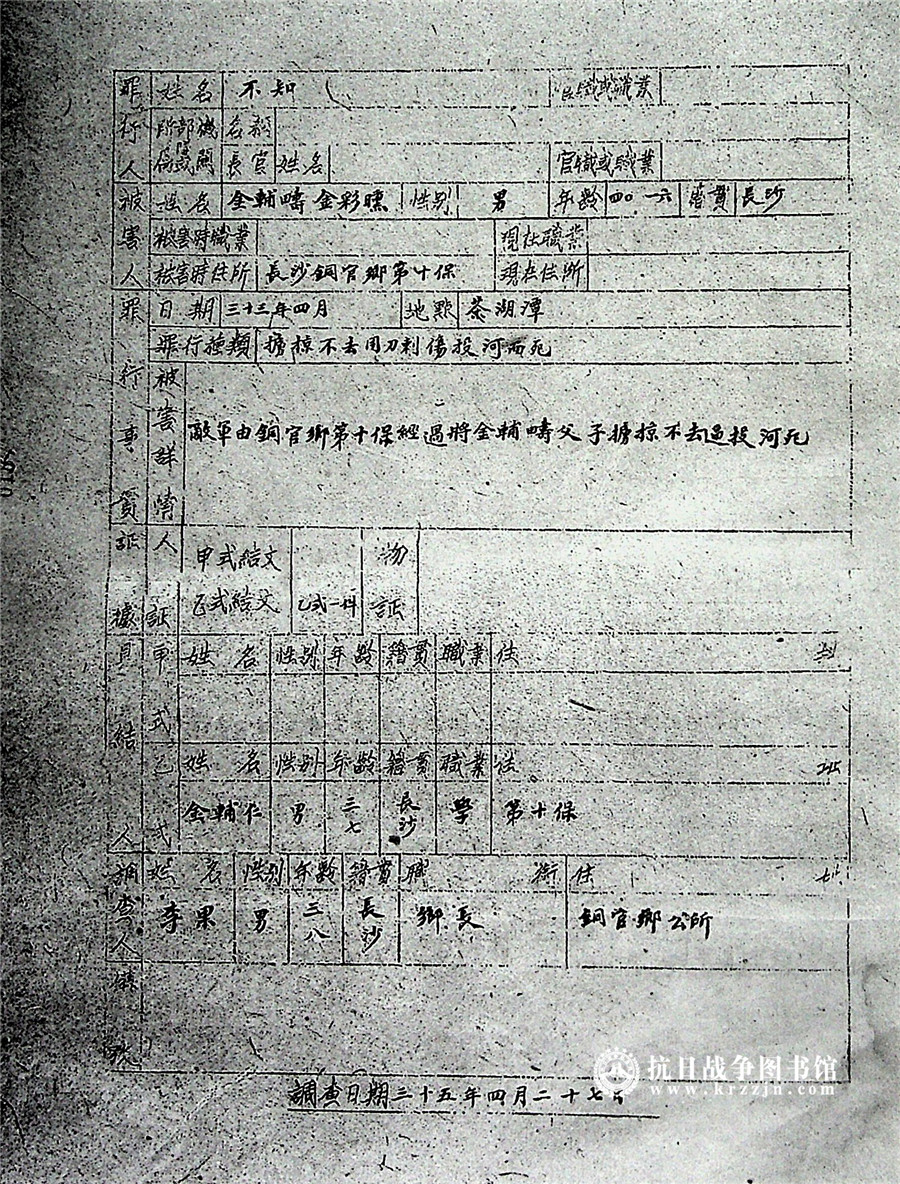 罪行人 姓名 不知 官職或職業
所部機 名彩
隊或關 長官 姓名 官職或职業
被害人 姓名 金輔疇 金彩 性别 男 年齡 四〇 一六 籍貫 長沙
被害時職業 現在職業
被害時住所 長沙銅官鄉第十保 現在住所
罪行事實 日期 三十三年四月 地點 茶湖潭
罪行種類 擄掠不去用刀刺傷投河而死
被害詳情 敵軍由銅官鄉第十保經過將金輔疇父子擄掠不去迫投河死
証據 人証 甲式結文 物証
乙式結文 乙式一件
具結人 甲式 姓名 性别 年齡 籍貫 職業 住
乙式 姓名 性别 年齡 籍貫 職業 住
金輔仁 男 三七 長沙 學 第十保
調查人 姓名 性别 年齡 籍貫 職銜 住
李果 男 三八 長沙 鄉長 銅官鄉公所
調查日期三十五年四月二十七日
抗日战争图书馆
www.krzzjn.com